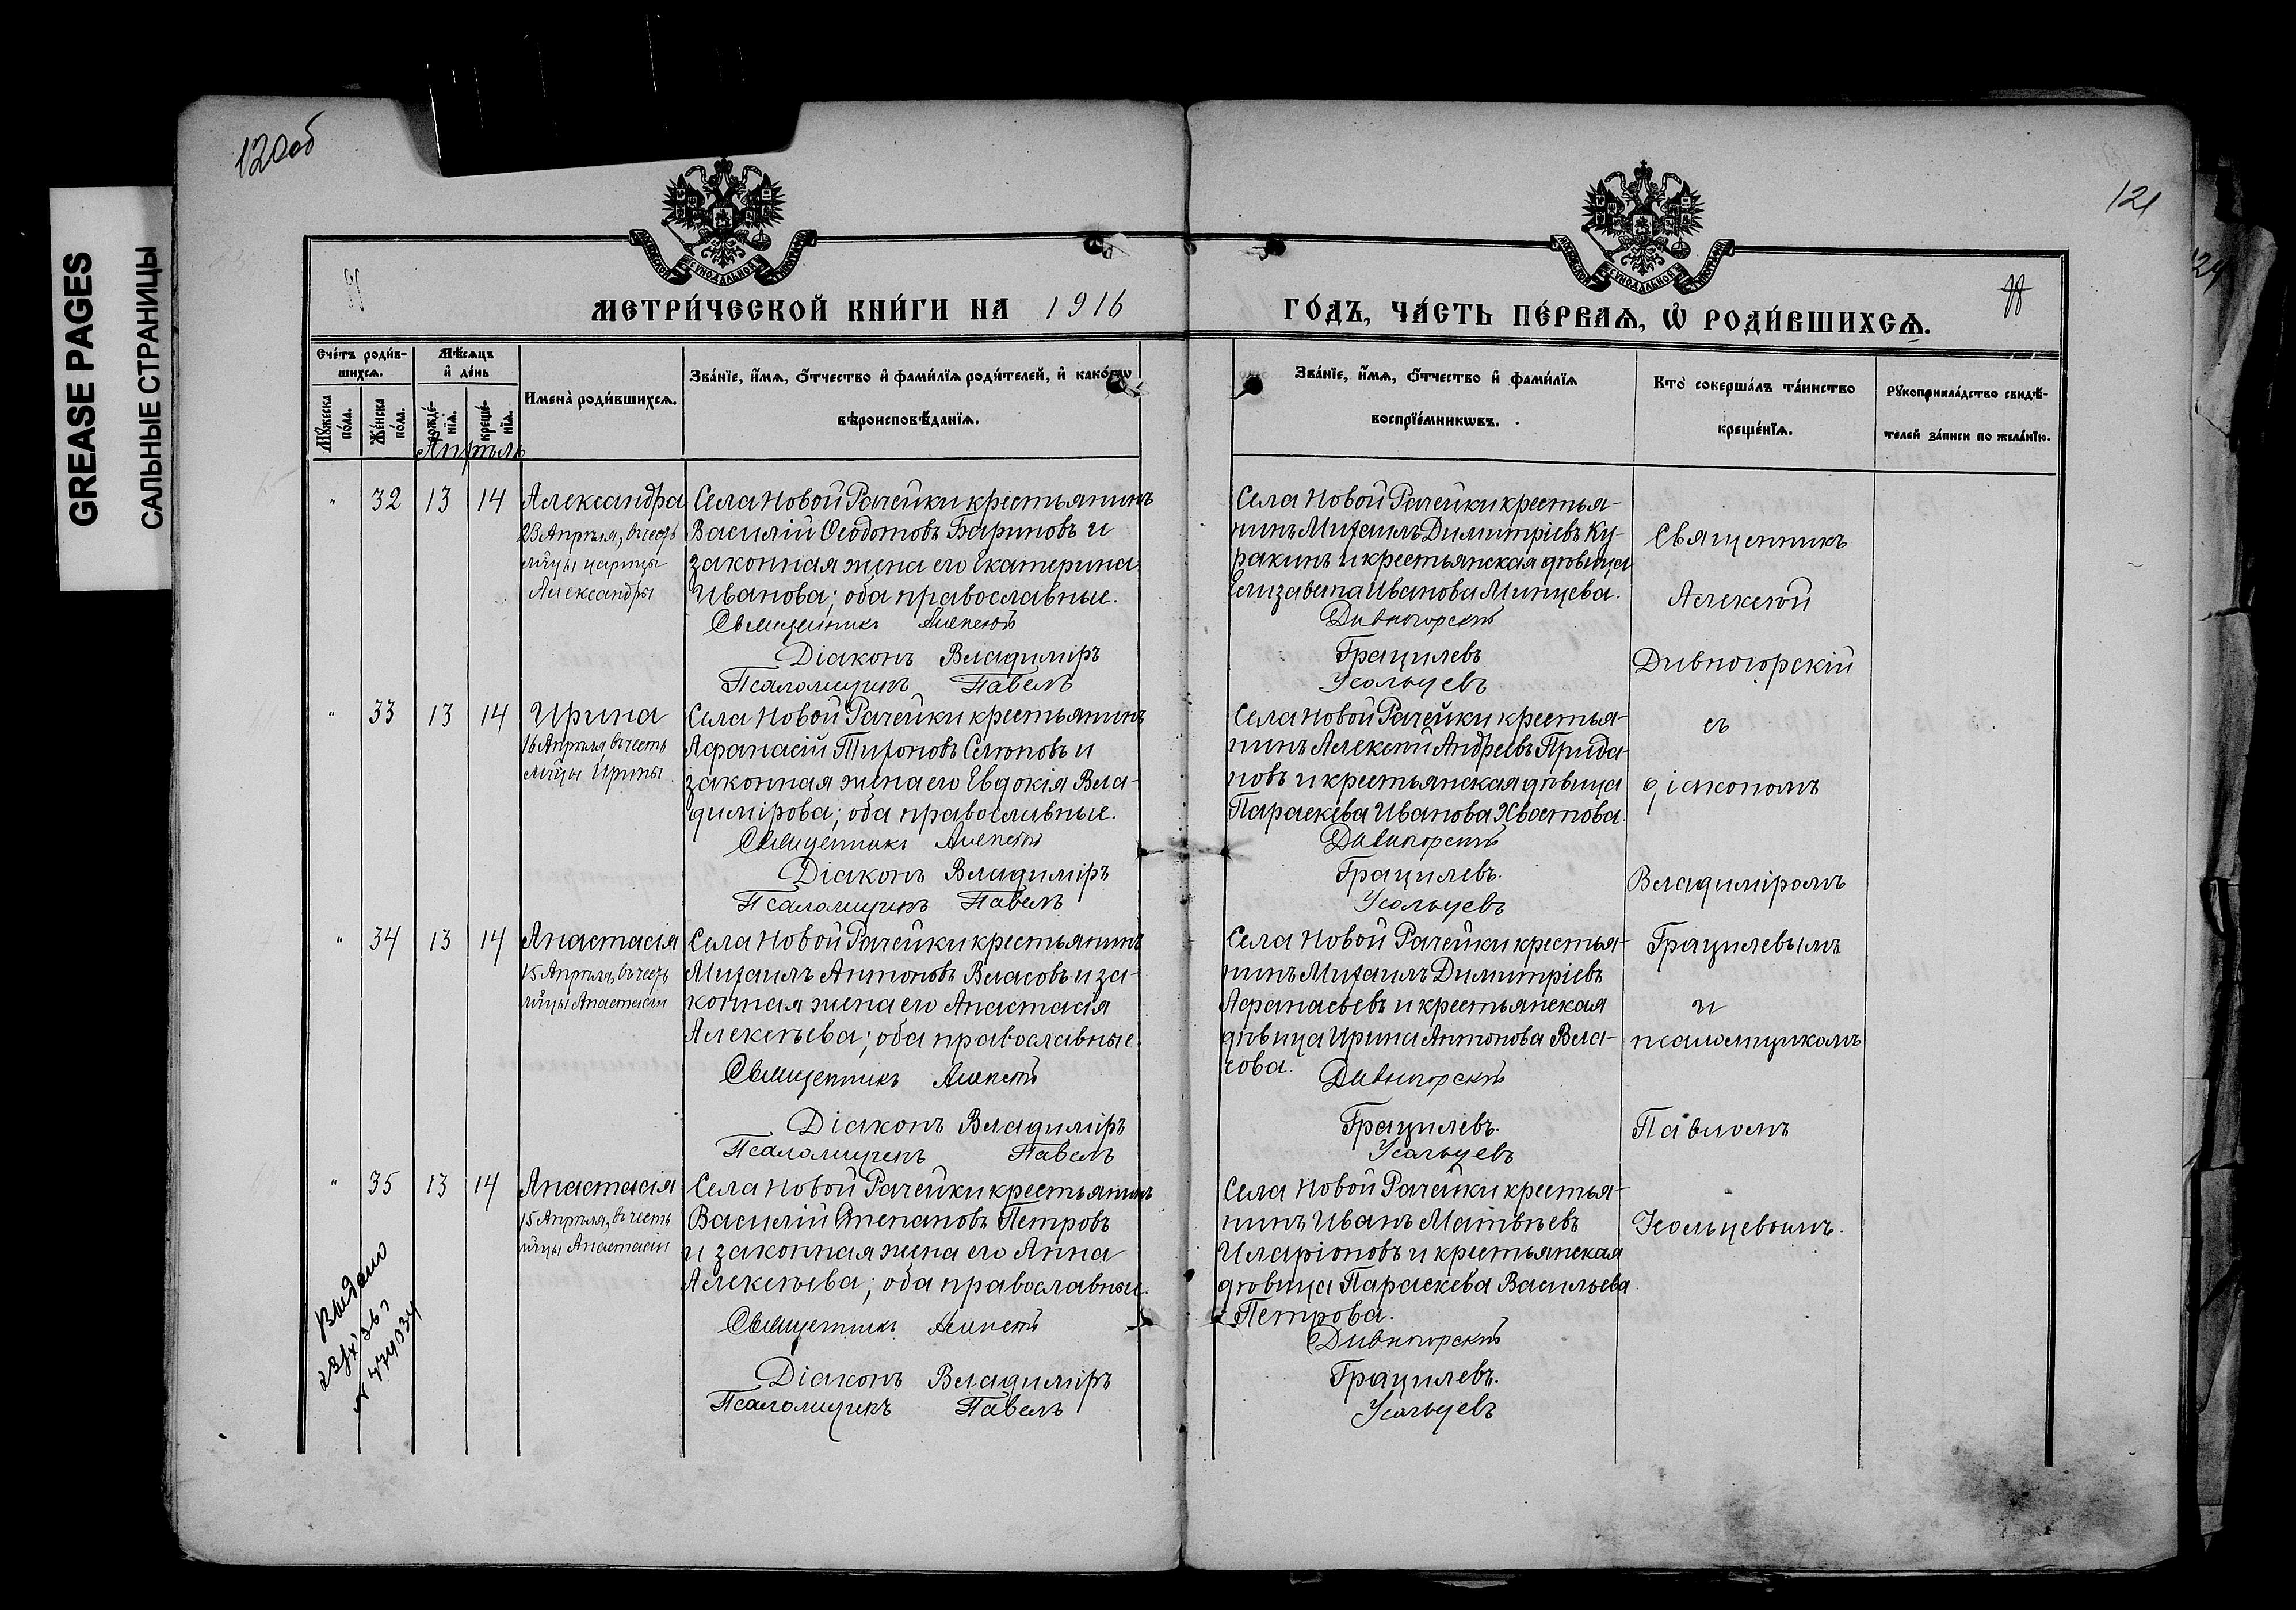 120об
121
124
GREASE PAGES
САЛЬНЫЕ СТРАНИЦЫ
МЕТРИ́ЧЕСКОЙ КНИ́ГИ НА 1916
ГО́ДЪ, ЧА́СТЬ ПЕ́РВАѦ, Ѡ҆ РОДИ́ВШИХСѦ.
Сче́тъ роди́в-
шихсѧ.
Мѣ́сѧцъ
и҆ де́нь
Мꙋ́жеска
по́ла.
Же́нска
по́ла.
рожде́-
нїѧ.
креще́-
нїѧ.
Имена̀ роди́вшихсѧ.
Зва́нїе, и҆́мѧ, ѻ҆́тчество и҆ фами́лїѧ роди́телей, и҆ како́гѡ
вѣроисповѣ́данїѧ.
Зва́нїе, и҆́мѧ, ѻ҆́тчество и҆ фами́лїѧ
воспрїе́мникѡвъ.
Кто̀ соверша́лъ та́инство
креще́нїѧ.
Рꙋкоприкла́дство свидѣ́-
телей за́писи по жела́нїю.
Апрѣль
" 32 13 14 Александра
23 Апрѣля, въ честь
мч҃цы царицы
Александры
Села Новой Рачейки крестьянинъ
Василій Ѳеодотовъ Бариновъ и
законная жена его Екатерина
Иванова; оба православные.
Священникъ Алексій
Діаконъ Владиміръ
Псаломщикъ Павелъ
Села Новой Рачейки крестья-
нинъ Михаилъ Димитріевъ Ку-
ракинъ и крестьянская дѣвица
Елизавета Иванова Минцева.
Дивногорскій
Грацилевъ
Усольцевъ
Священникъ
Алексій
Дивногорскій
" 33 13 14 Ирина
16 Апрѣля въ честь
мч҃цы Ирины
Села Новой Рачейки крестьянинъ
Афанасій Тихоновъ Селюновъ и
законная жена его Евдокія Вла-
димірова; оба православные.
Священникъ Алексій
Діаконъ Владиміръ
Псаломщикъ Павелъ
Села Новой Рачейки крестья-
нинъ Алексій Андреевъ Прида-
новъ и крестьянская дѣвица
Параскева Иванова Хвостова.
Дивногорскій
Грацилевъ.
Усольцевъ
съ
діакономъ
Владиміромъ
" 34 13 14 Анастасія
15 Апрѣля, въ честь
мч҃цы Анастасіи
Села Новой Рачейки крестьянинъ
Михаилъ Антоновъ Власовъ и за-
конная жена его Анастасія
Алексѣева; оба православные
Священникъ Алексій
Діаконъ Владиміръ
Псаломщикъ Павелъ
Села Новой Рачейки крестья-
нинъ Михаилъ Димитріевъ
Афанасьевъ и крестьянская
дѣвица Ирина Антонова Вла-
сова.
Дивногорскій
Грацилевъ.
Усольцевъ
Грацилевымъ
и
псаломщикомъ
Павломъ
" 35 13 14 Анастасія
15 Апрѣля, въ честь
мч҃цы Анастасіи
Села Новой Рачейки крестьянинъ
Василій Степановъ Петровъ
и законная жена его Анна
Алексѣева; оба православные.
Священникъ Алексій
Діаконъ Владиміръ
Псаломщикъ Павелъ
Села Новой Рачейки крестья-
нинъ Иванъ Матвѣевъ
Иларіоновъ и крестьянская
дѣвица Параскева Васильева
Петрова.
Дивногорскій
Грацилевъ.
Усольцевъ
Усольцевымъ.
Выдано